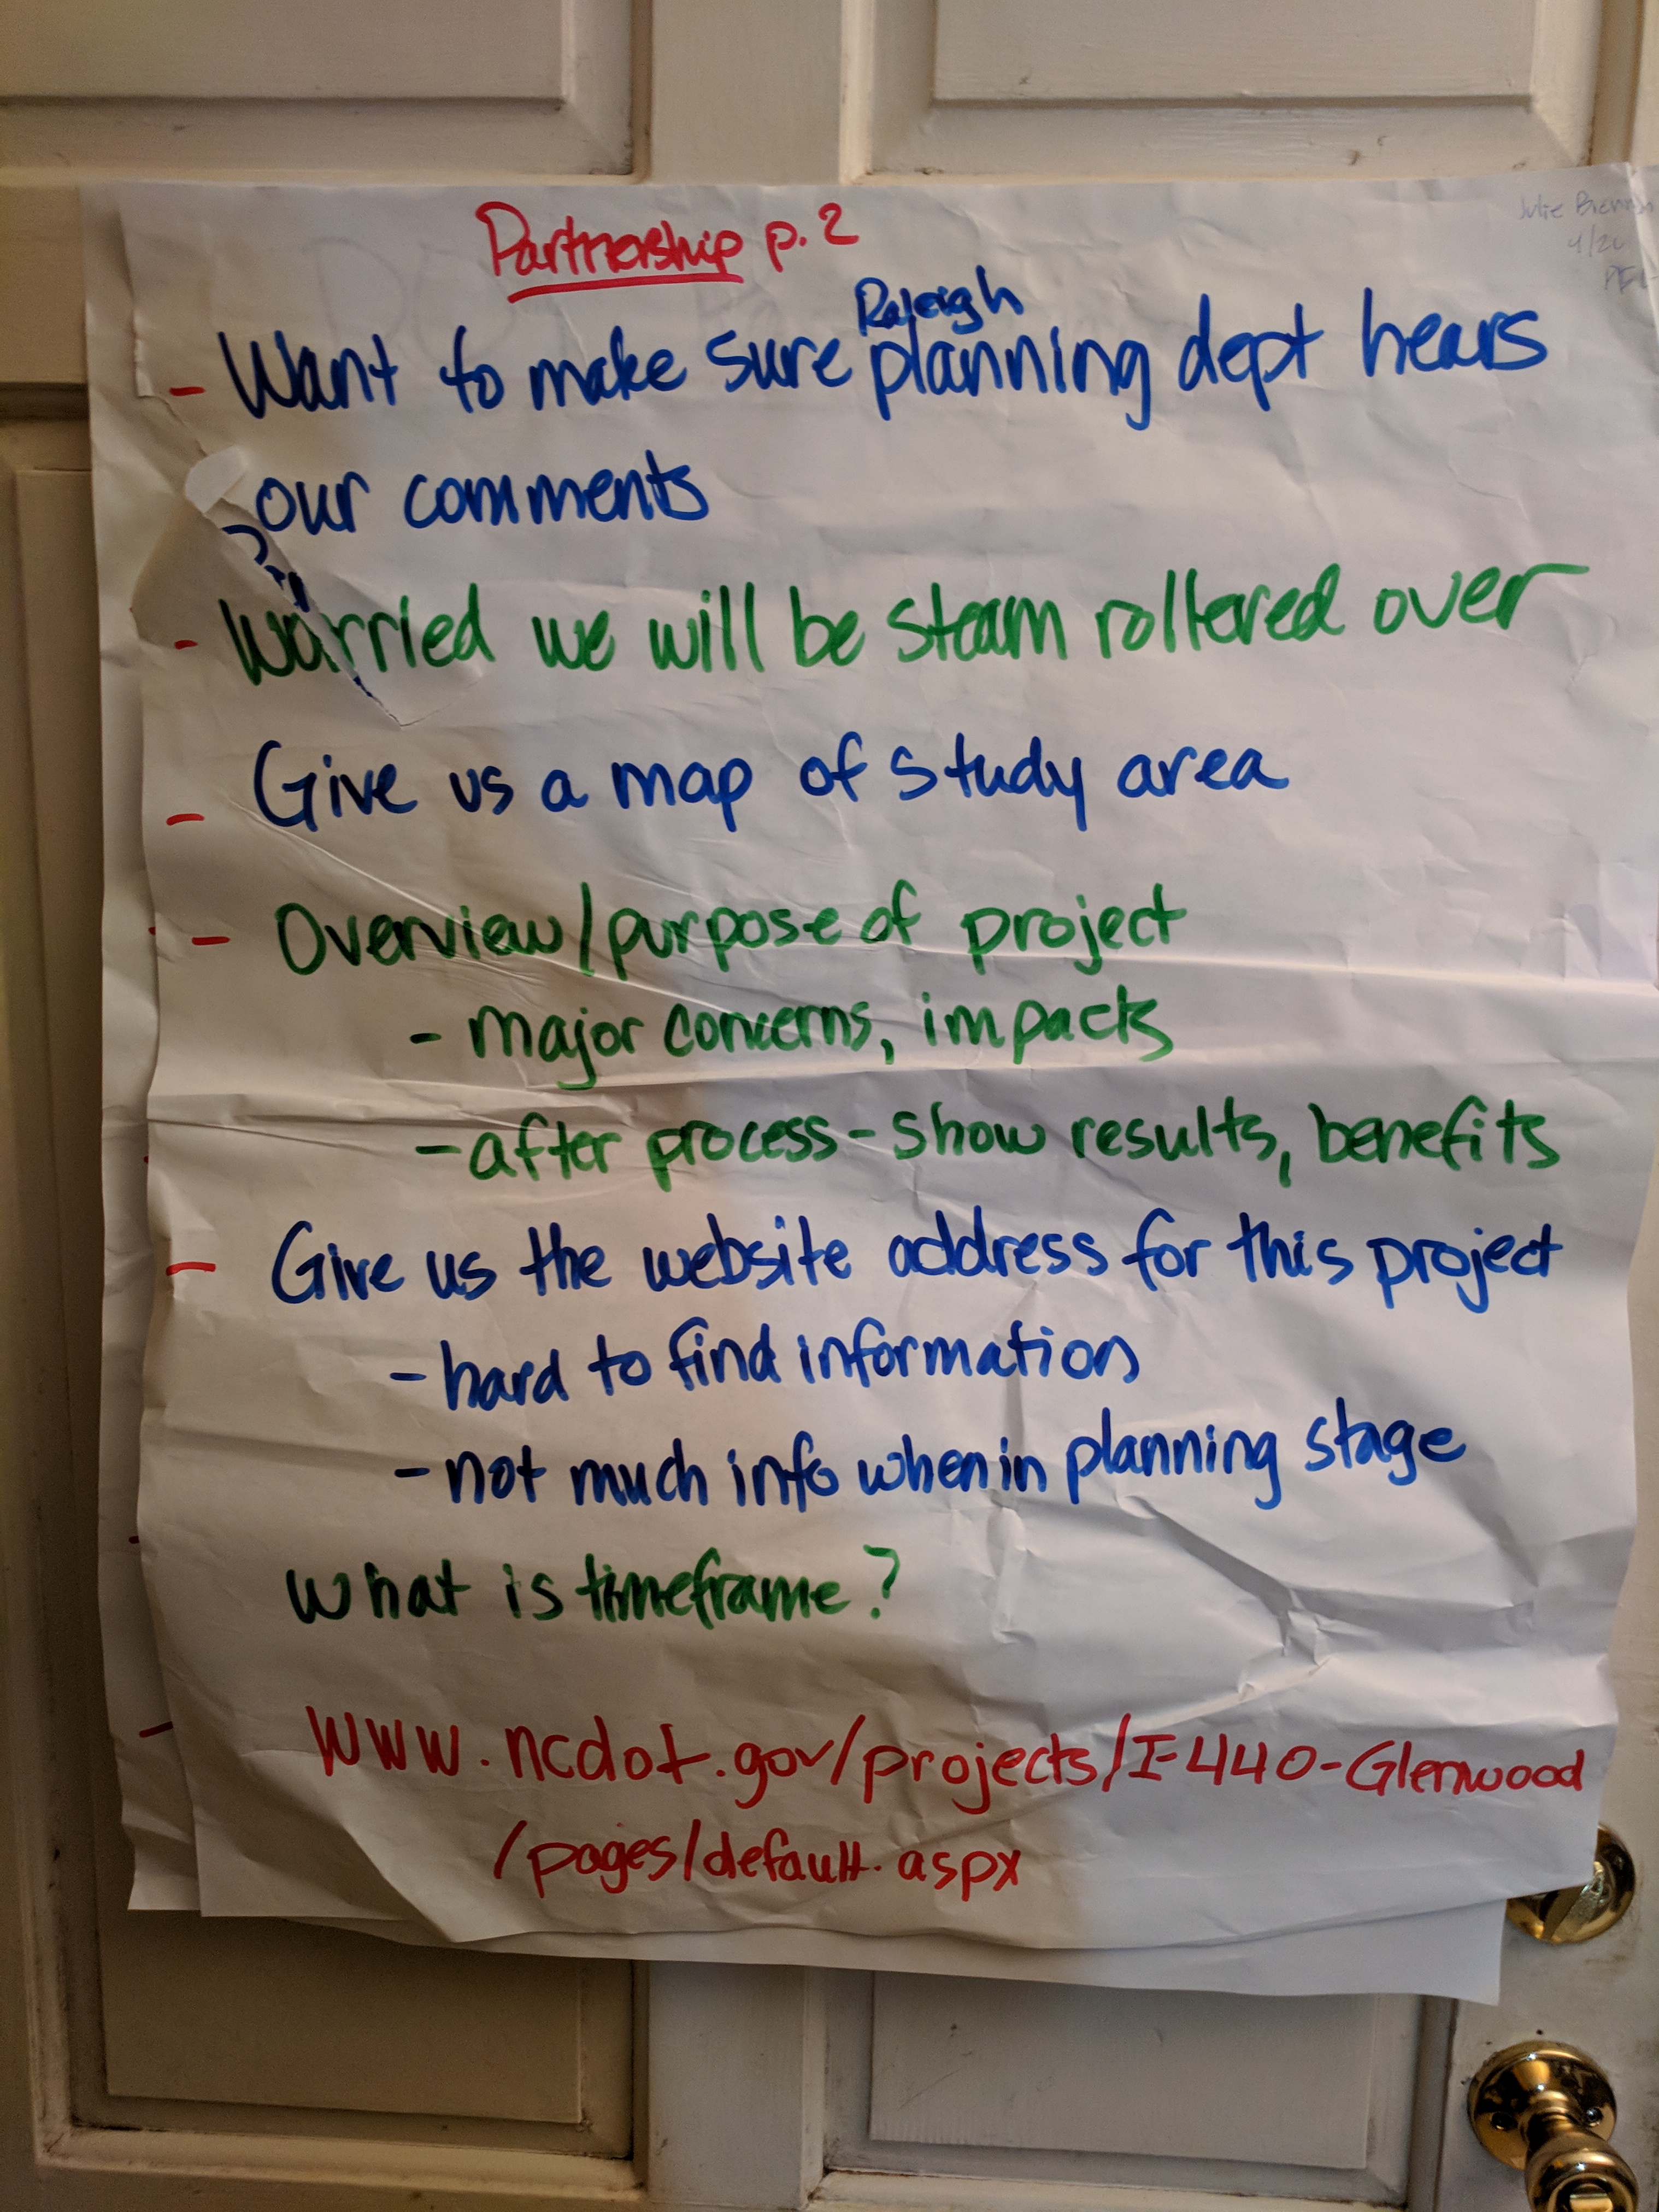 Partnership p. 2
Julie
4/20
Raleigh
- Want to make sure planning dept hears
our comments
- Worried we will be steam rollered over
- Give us a map of study area
- Overview/purpose of project
- major concerns, impacts
- after process - show results, benefits
- Give us the website address for this project
- hard to find information
- not much info when in planning stage
What is timeframe?
www.ncdot.gov/projects/I-440-Glenwood
/pages/default.aspx